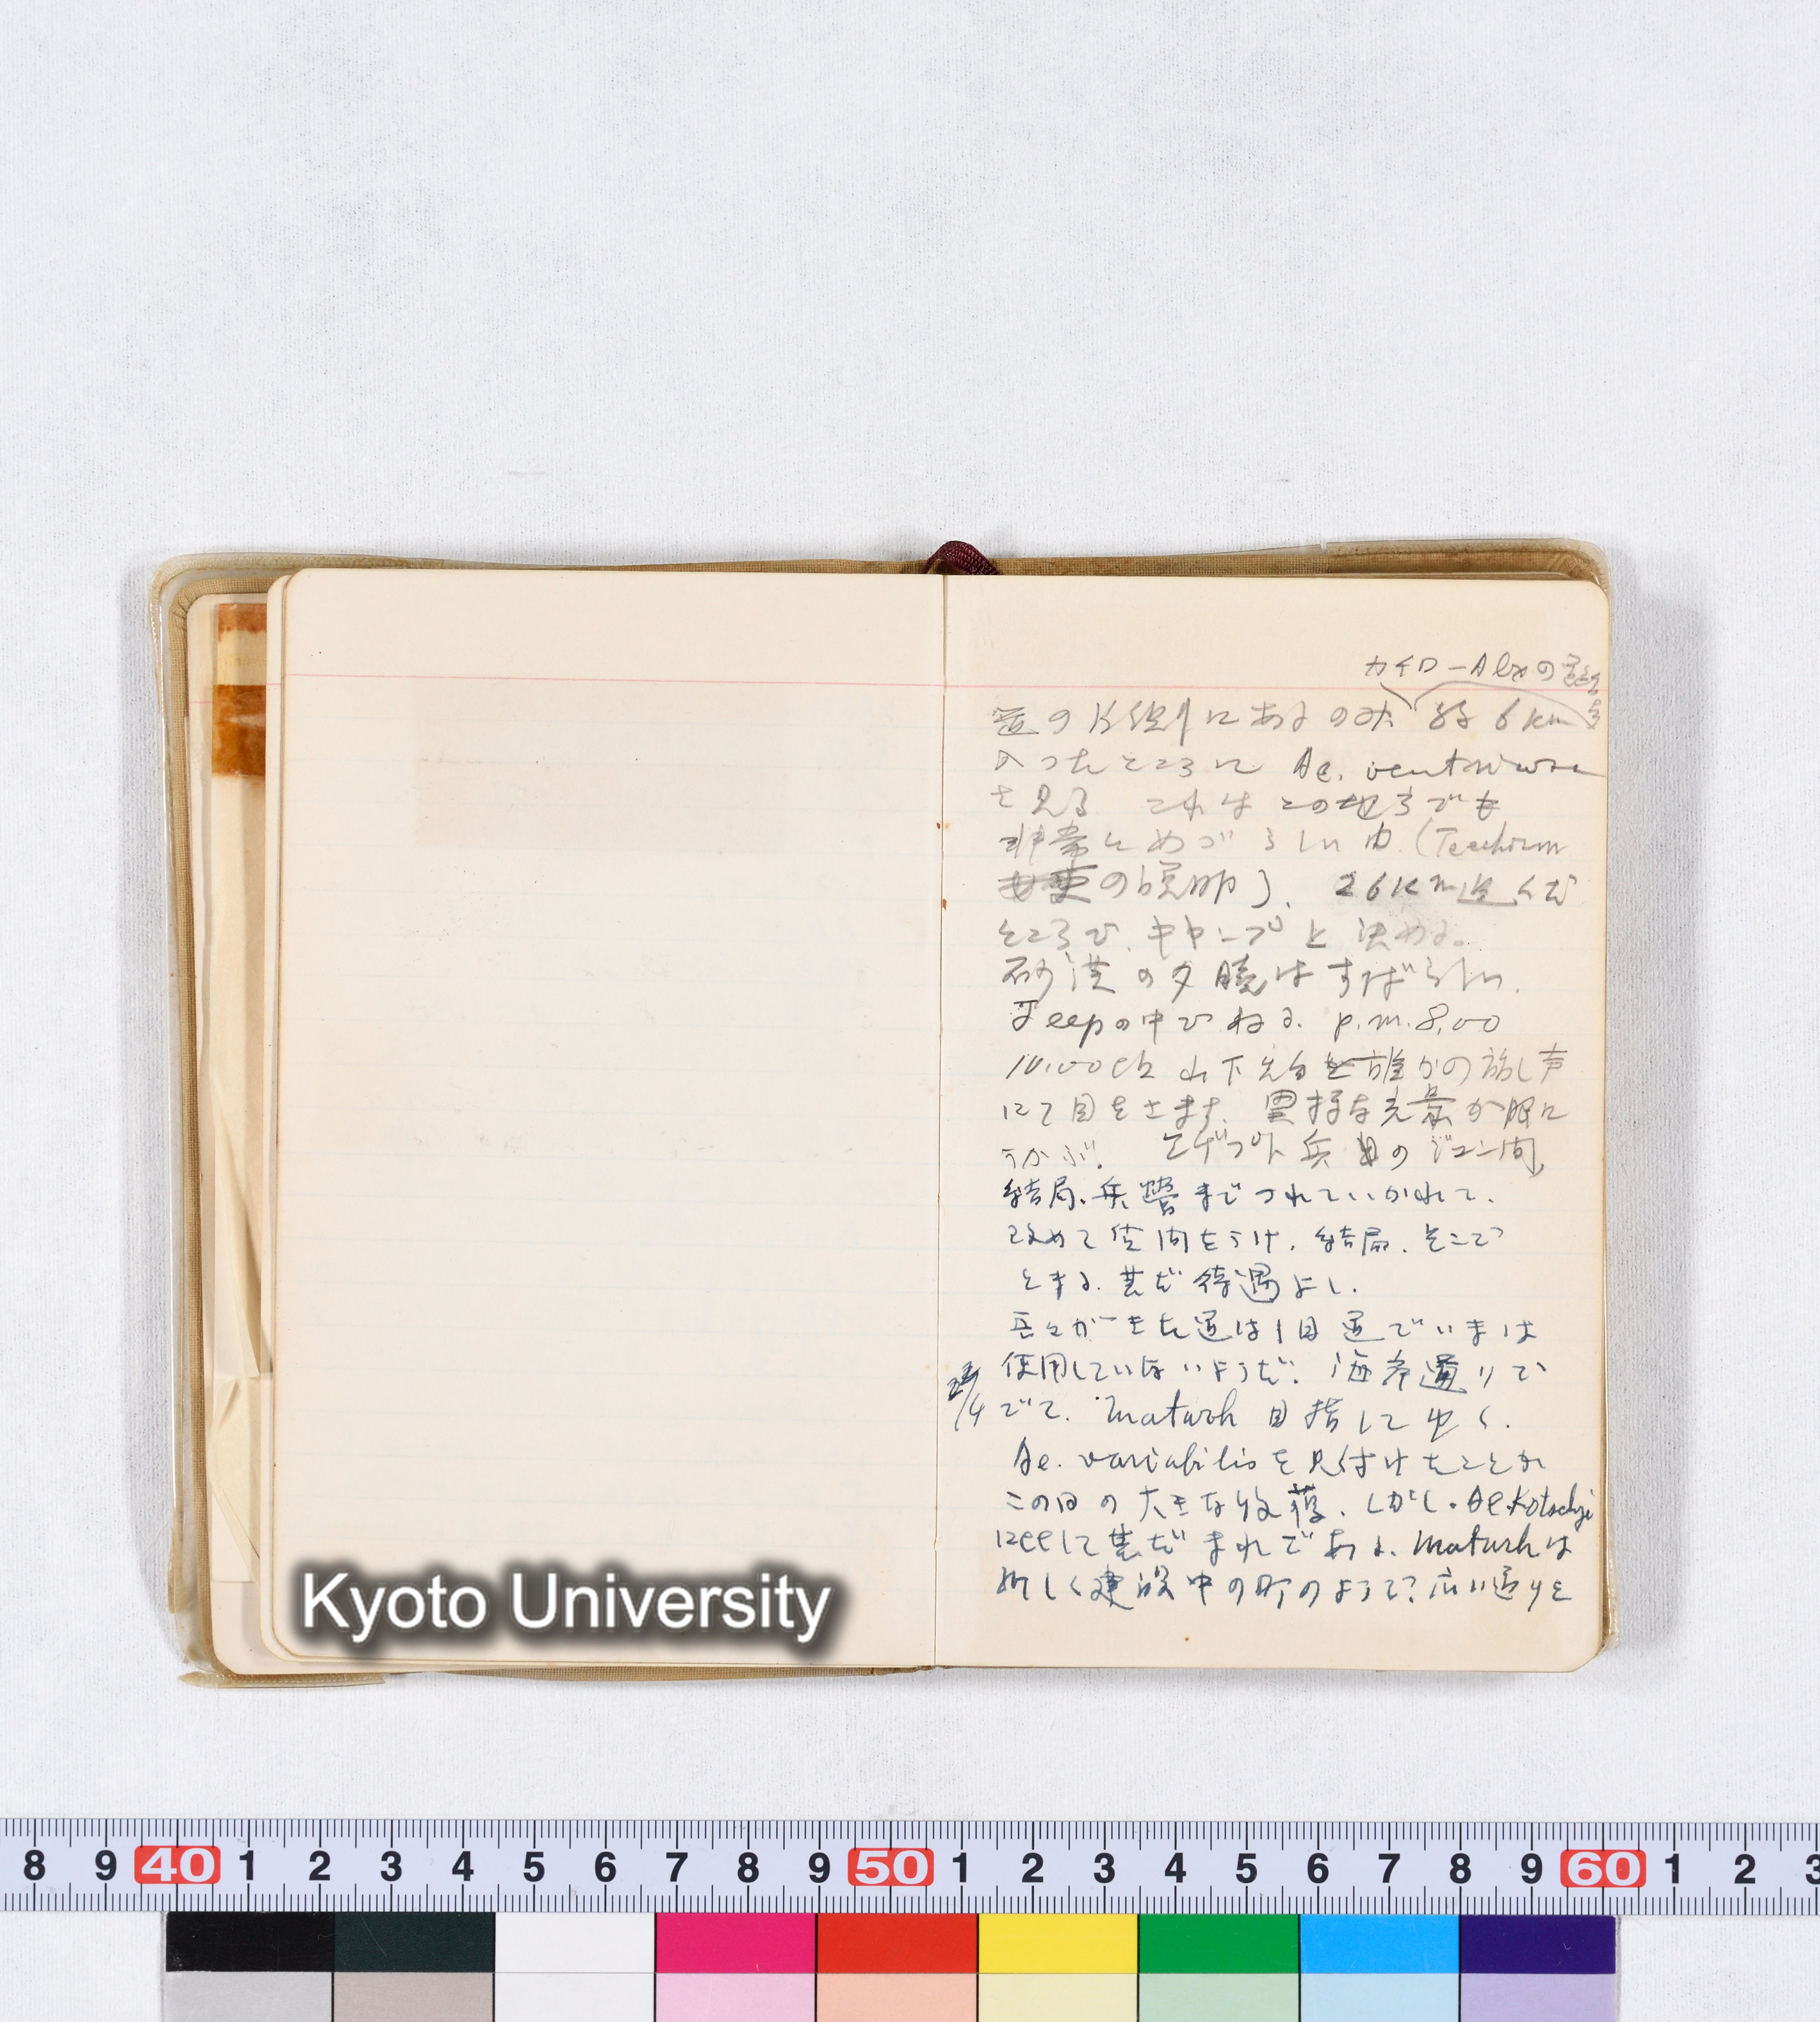 カイロ-Alexの
道の片側にあるのみ 約6km
入ったところに Ae. ventricosa
を見る これはこの地方でも
非常にめづらしい由(Taeckholm
の説明)、26km進んだ
ところで、キャンプと決める。
砂漠の夕暁はすばらしい.
Jeepの中でねる. p.m.8,00
10.00 山下先生と誰かの話し声
にて目をさます. 異様な光景が眼に
うかぶ. エヂプト兵の
結局、兵営までつれていかれて.
改めて質問をうけ、結局、そこで
とまる. 甚だ待遇よし.
吾々がきた道は旧道でいまは
使用していないようだ. 海岸通りで
/4 でて. Matruh 目指してゆく.
Ae. variabilisを見付けたことが
この日の大きな収穫. しかし. Ae. Kotschyi
に比して甚だまれである. Matruhは
新しく建設中の町のようで? 広い通りを
Kyoto University
8 9 40 1 2 3 4 5 6 7 8 9 50 1 2 3 4 5 6 7 8 9 60 1 2 3